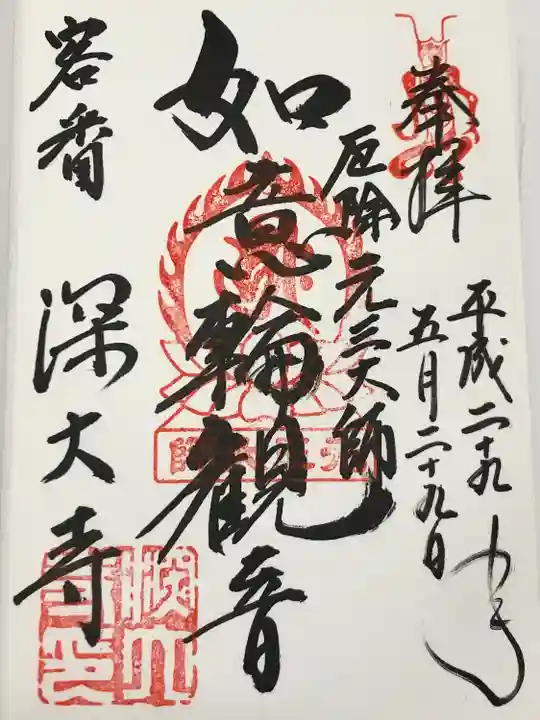 奉拝
平成二十九年
五月二十九日
厄除元三大師
如意輪観音
客番
深大寺